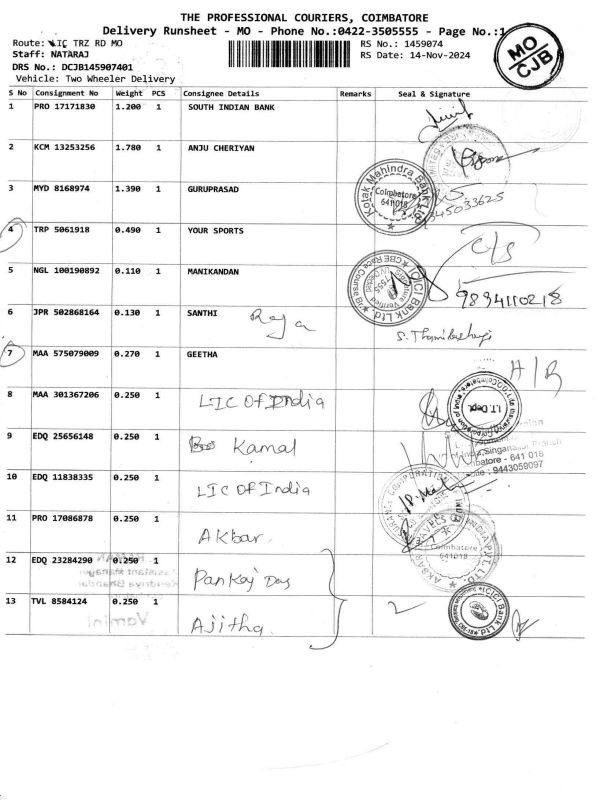 THE PROFESSIONAL COURIERS, COIMBATORE
Delivery Runsheet - MO - Phone No.:0422-3505555 - Page No.:1
Route: LIC TRZ RD MO
RS No.: 1459074
Staff: NATARAJ
RS Date: 14-Nov-2024
DRS No.: DCJB145907401
Vehicle: Two Wheeler Delivery
MO
CJB
S No Consignment No Weight PCS Consignee Details Remarks Seal & Signature
1 PRO 17171830 1.200 1 SOUTH INDIAN BANK
2 KCM 13253256 1.780 1 ANJU CHERIYAN
3 MYD 8168974 1.390 1 GURUPRASAD
Kotak Mahindra Bank Ltd
Coimbatore
641018
4 TRP 5061918 0.490 1 YOUR SPORTS
C/S
5 NGL 100190892 0.110 1 MANIKANDAN
ICICI Bank Ltd.
CBE Race Course
9894110218
6 JPR 502868164 0.130 1 SANTHI
Raja
7 MAA 575079009 0.270 1 GEETHA
8 MAA 301367206 0.250 1 LIC OF India
I.T. Dept.
9 EDQ 25656148 0.250 1 Kamal
Singanallur Branch
641 018
9443059097
10 EDQ 11838335 0.250 1 LIC OF India
11 PRO 17086878 0.250 1 Akbar
Coimbatore
641018
12 EDQ 23284290 0.250 1 Pankaj Das
13 TVL 8584124 0.250 1 Ajitha
2
ICICI Bank Ltd.
Yamini